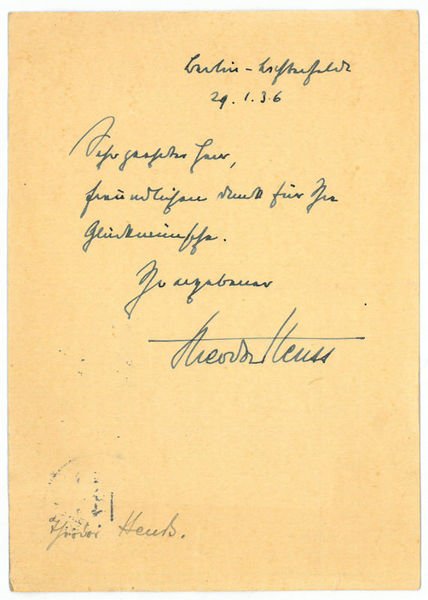 Berlin-Lichterfelde
29.1.36
Sehr geehrter Herr,
freundlichen Dank für Ihre
Glückwünsche.
Ihr ergebener
Theodor Heuss
Theodor Heuß.